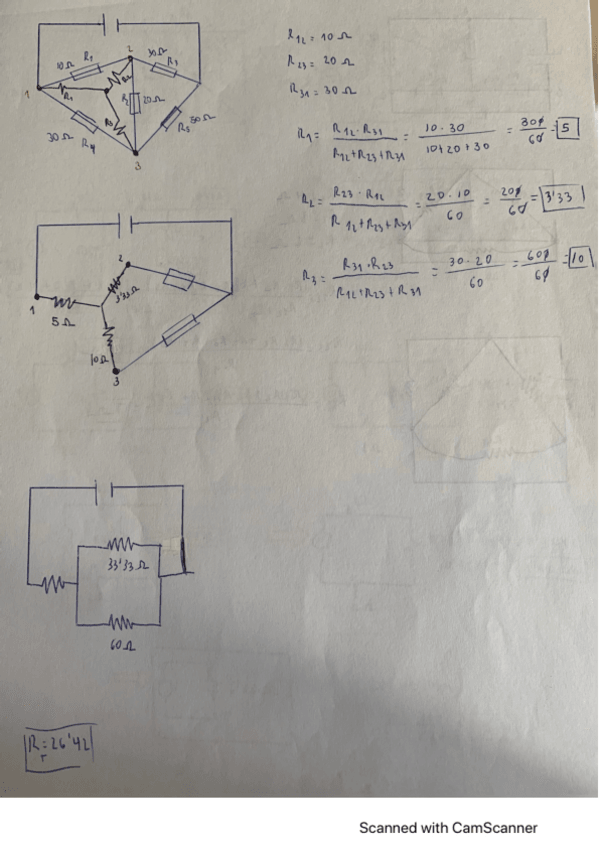 R12 = 10 Ω
R23 = 20 Ω
R31 = 30 Ω
2
10Ω R1
30Ω R3
1
R1
R2
R2 20Ω
R3
30Ω R4
R5 50Ω
3
R1 = R12 · R31 / R12+R23+R31 = 10 · 30 / 10+20+30 = 300/60 = 5
R2 = R23 · R12 / R12+R23+R31 = 20 · 10 / 60 = 200/60 = 3'33
R3 = R31 · R23 / R12+R23+R31 = 30 · 20 / 60 = 600/60 = 10
2
3'33Ω
1
5Ω
10Ω
3
33'33 Ω
60Ω
RT = 26'42
Scanned with CamScanner